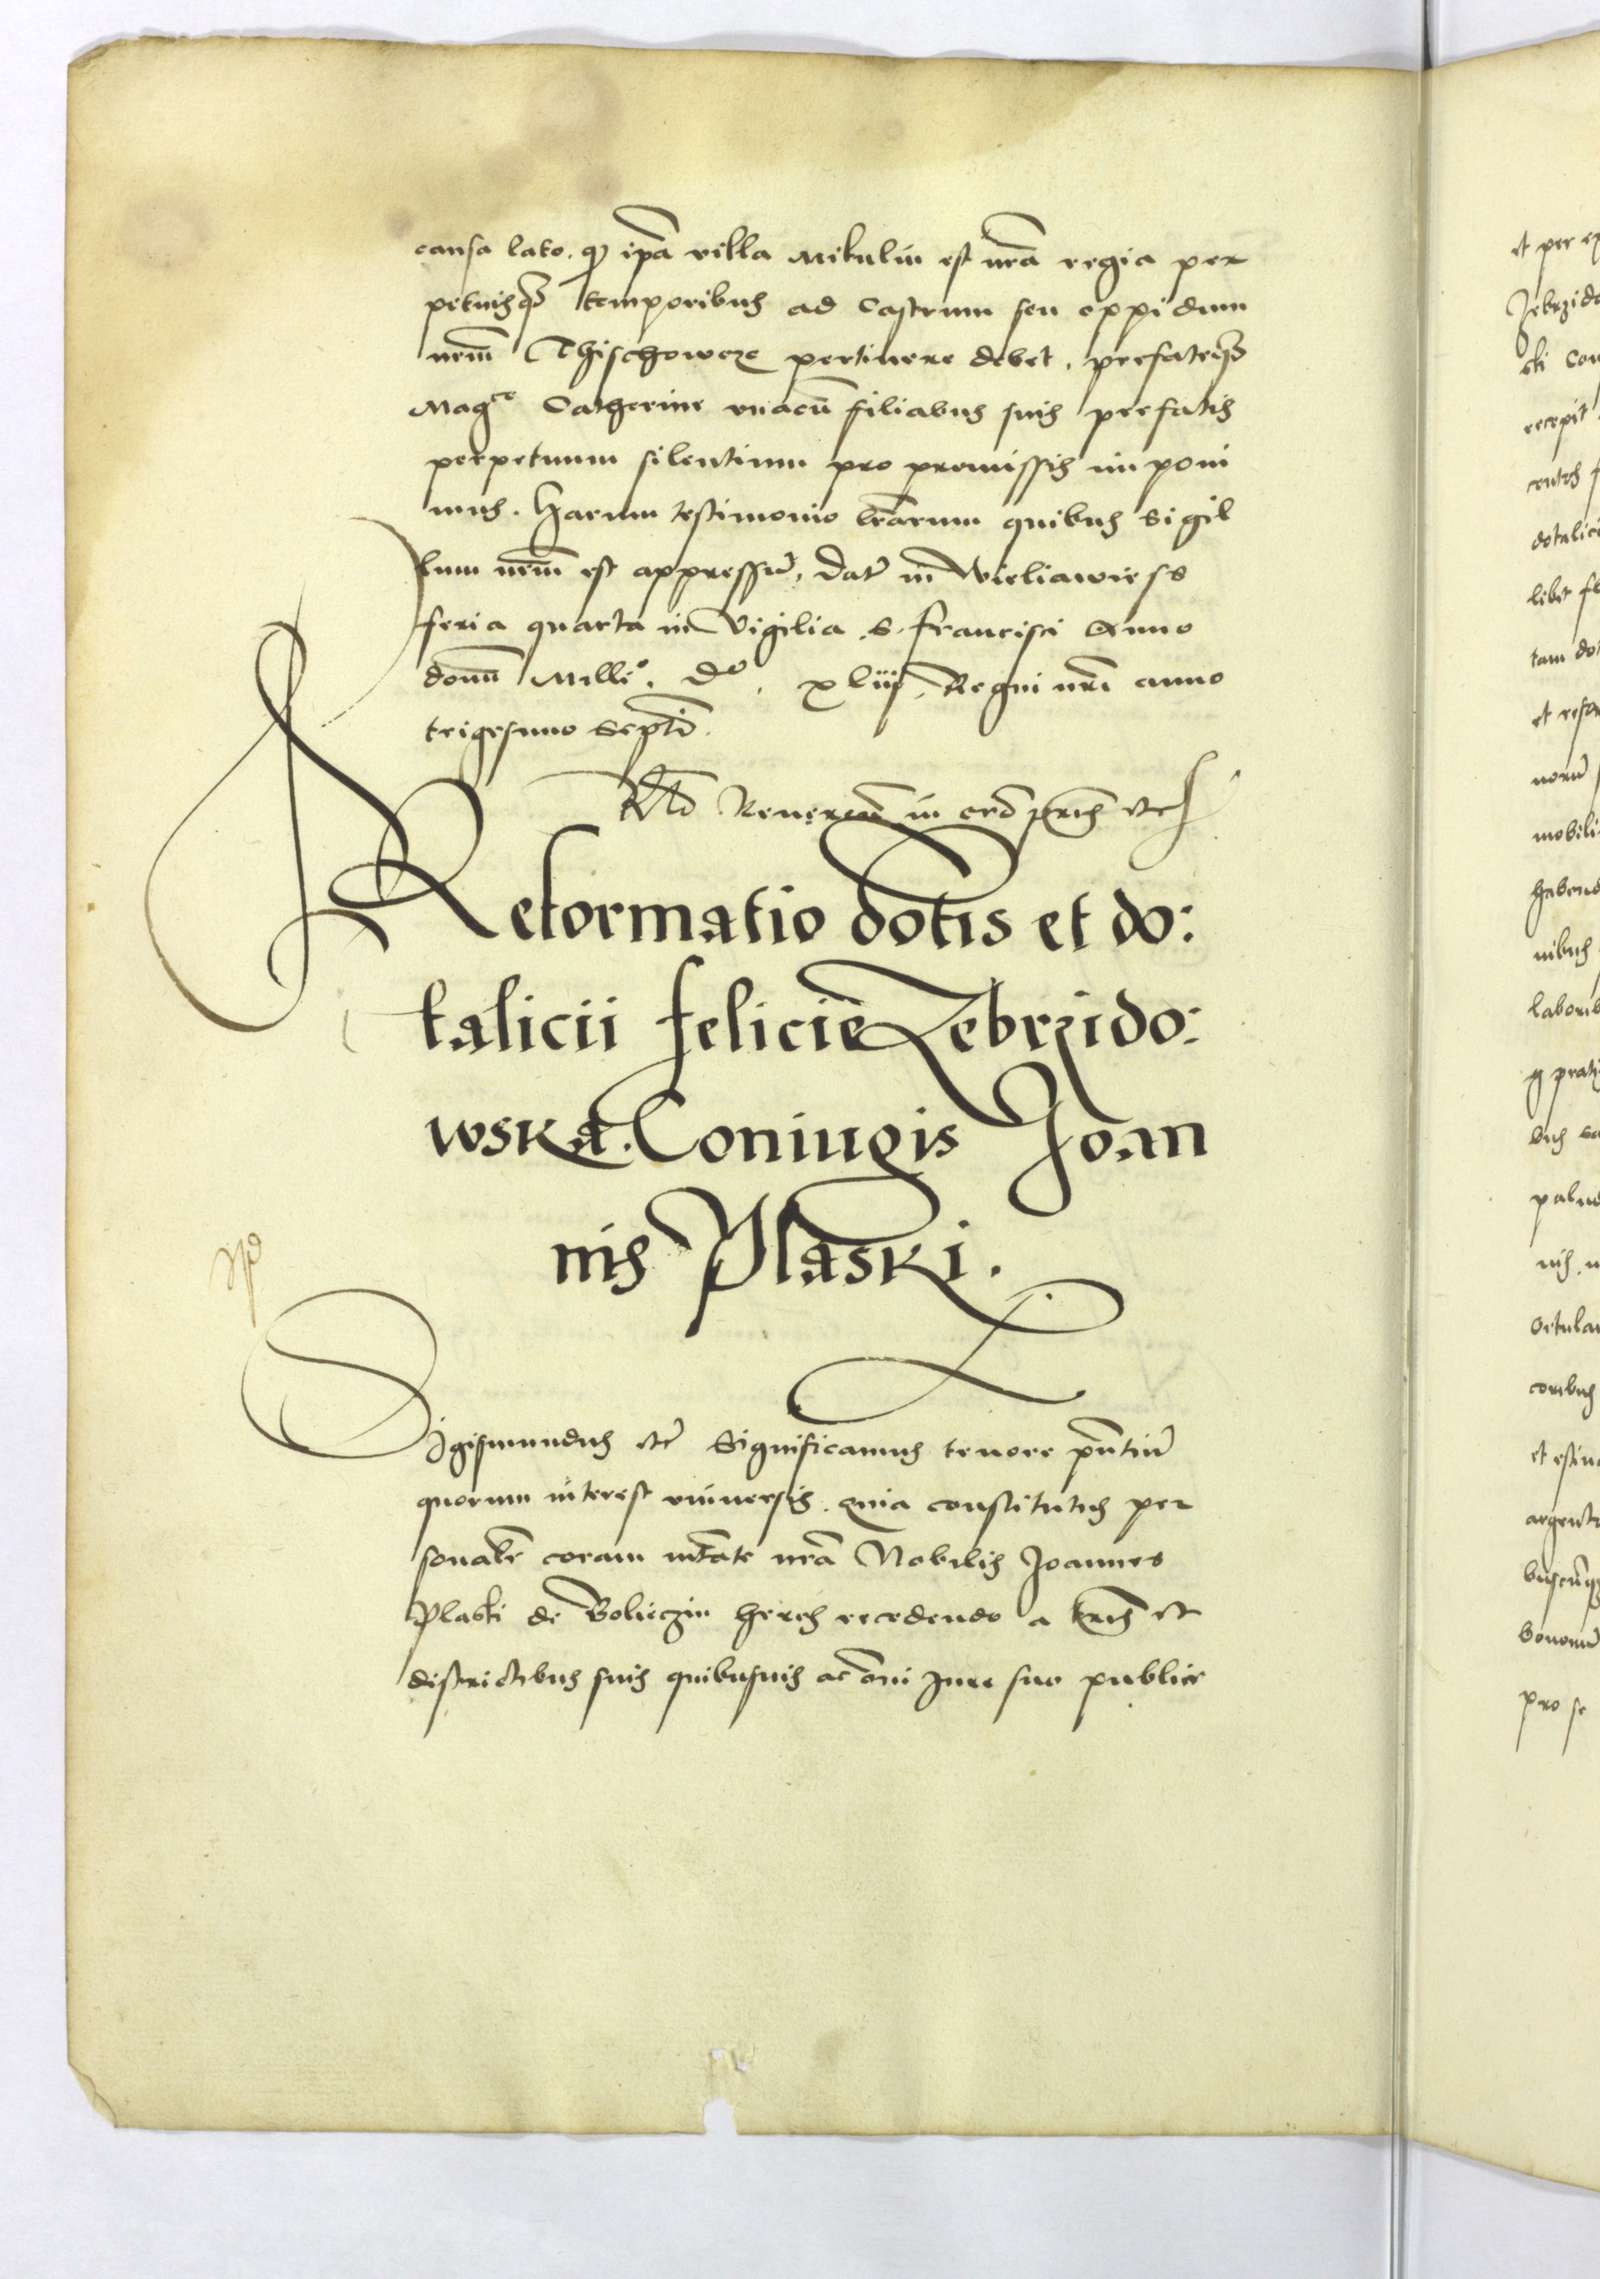 causa lato. qp ipā villa Mikulin est nrā regia per
petuisqz temporibus ad Castrum seu oppidum
nrm̄ Thischowcze pertinere debet. prefateqz
Magce Catherine vnacū filiabus suis prefatis
perpetuum silentium pro premissis imponi
mus. Harum testimonio lrārum quibus Sigil
lum nrm̄ est appressū. Dat̄ in Wieliawiess
feria quarta in Vigilia S. Francisci Anno
domī Milleº. Dº. xliij. Regni nrī anno
trigesimo Septīo.
Rlo Reueren in
Reformatio dotis et do:
talicii felicie Zebrzido:
wska. Coniugis Joan
nis Plaski.
Sigismundus etc̄ Significamus tenore pn̄tiū
quorum interest vniuersis. quia constitutus per
sonalr̄ coram mtāte nrā Nobilis Joannes
Plaski de Bolieczin heres recedendo a trīs et
districtibus suis quibusuis ac om̄i Jure suo publice
et per
Zebrzido
recepit
dotalici
libet
tam do
et refor
norū
mobili
habend
nibus
labori
palud
nis.
Ortulan
coribus
argent
buscūqz
bonorū
pro se